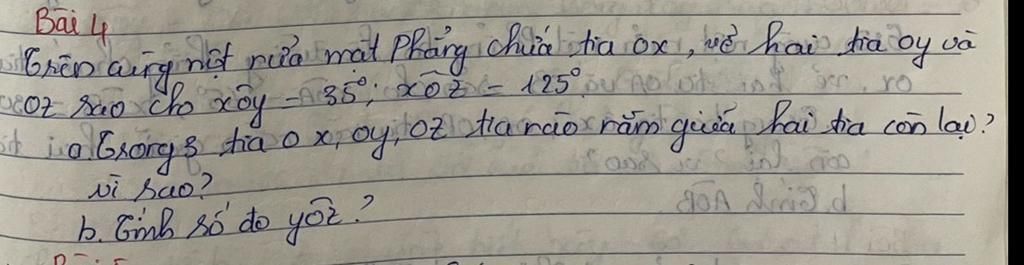 Bài 4
Trên cùng một nửa mặt phẳng chứa tia ox, vẽ hai tia oy và
oz sao cho xôy = 35°; xôz = 125°.
a. Trong 3 tia ox, oy, oz tia nào nằm giữa hai tia còn lại?
vì sao?
b. Tính số đo yôz?